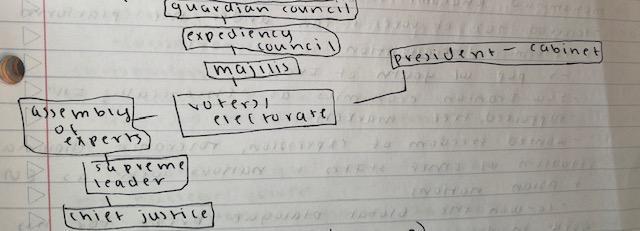 guardian council
expediency
council
majilis
president - cabinet
voters/
electorate
assembly
of
experts
supreme
leader
chief justice